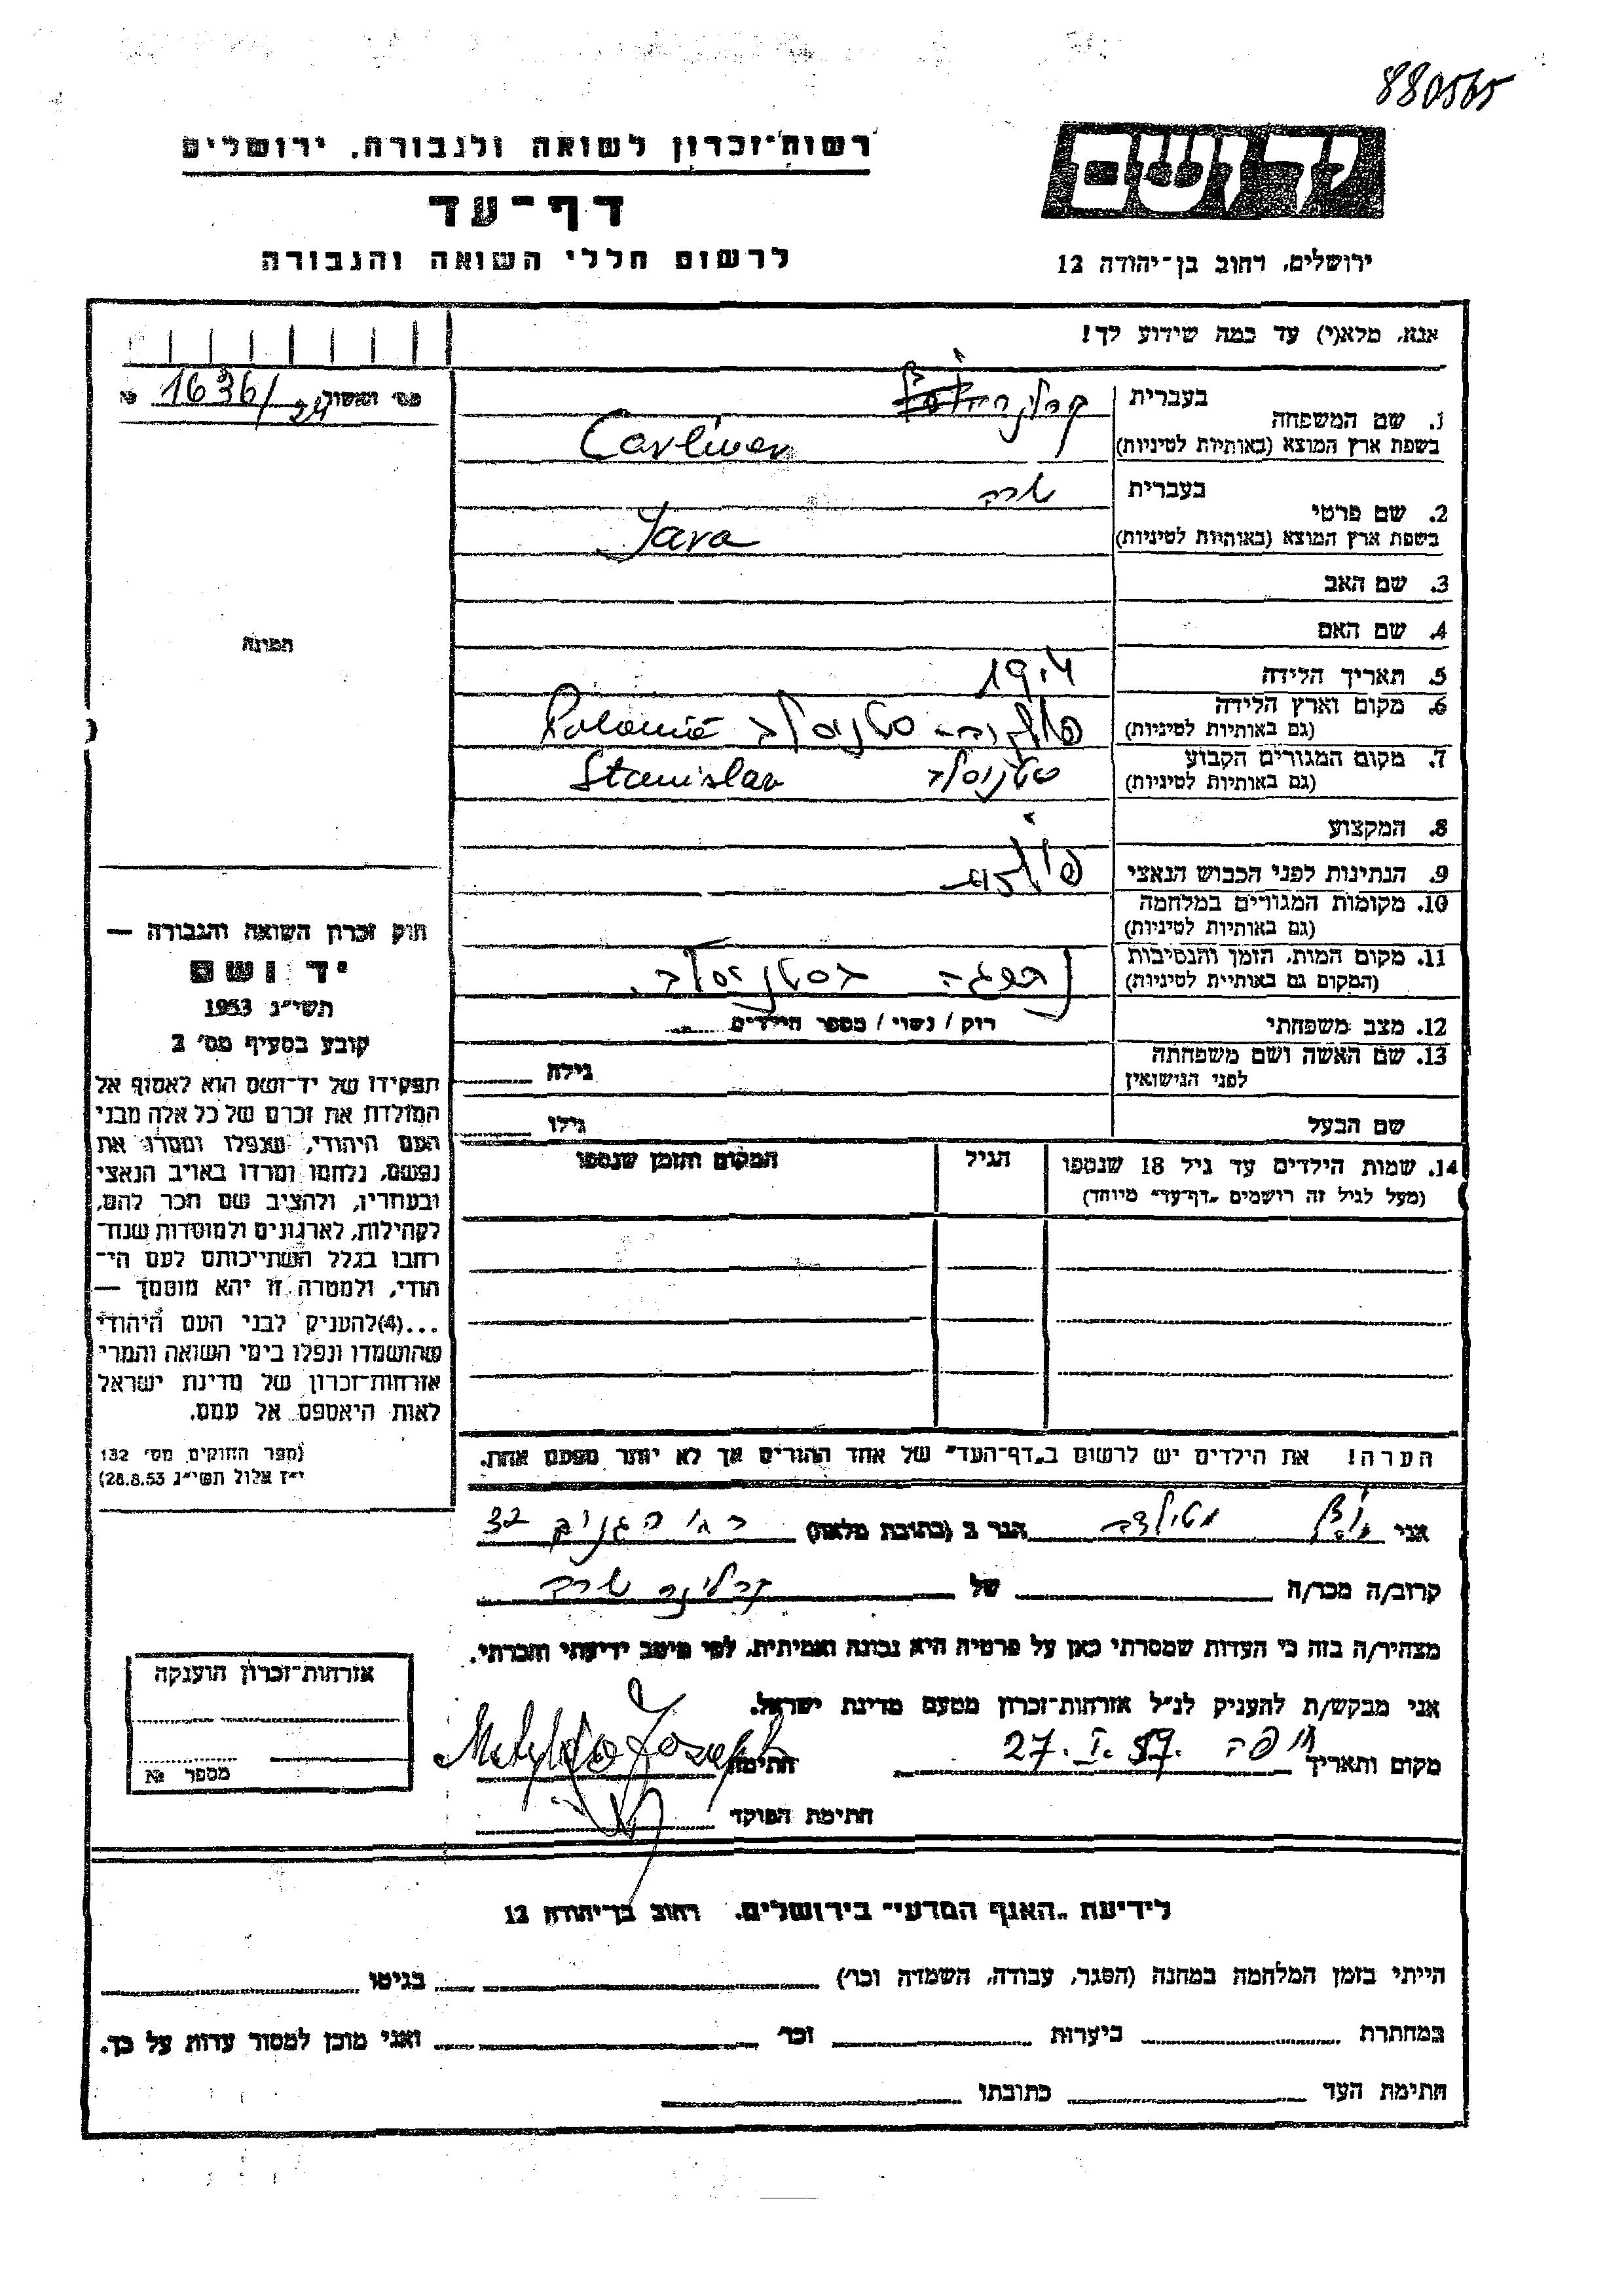 880565
רשות־זכרון לשואה ולגבורה, ירושלים
דף־עד
לרשום חללי השואה והגבורה
יד ושם
ירושלים, רחוב בן־יהודה 12
אנא, מלא(י) עד כמה שידוע לך!
מס׳ האשה 1636/24 №
1. שם המשפחה
בעברית קרלינר
בשפת ארץ המוצא (באותיות לטיניות) Carliner
2. שם פרטי
בעברית שרה
בשפת ארץ המוצא (באותיות לטיניות) Sara
3. שם האב
4. שם האם
5. תאריך הלידה 1904
6. מקום וארץ הלידה
(גם באותיות לטיניות) סטניסלב Polonia
7. מקום המגורים הקבוע
(גם באותיות לטיניות) סטניסלב Stanislav
8. המקצוע
9. הנתינות לפני הכבוש הנאצי פולנית
10. מקומות המגורים במלחמה
(גם באותיות לטיניות)
11. מקום המות, הזמן והנסיבות
(המקום גם באותיות לטיניות) נספגה בסטניסלב.
12. מצב משפחתי רוק / נשוי / מספר הילדים
13. שם האשה ושם משפחתה
לפני הנישואין גילה
שם הבעל גילו
14. שמות הילדים עד גיל 18 שנספו
(מעל לגיל זה רושמים „דף־עד״ מיוחד)
הגיל
המקום והזמן שנספו
הערה! את הילדים יש לרשום ב„דף־העד״ של אחד ההורים אך לא יותר מפעם אחת.
התמונה
חוק זכרון השואה והגבורה —
יד ושם
תשי״ג 1953
קובע בסעיף מס׳ 2
תפקידו של יד־ושם הוא לאסוף אל
המולדת את זכרם של כל אלה מבני
העם היהודי, שנפלו ומסרו את
נפשם, נלחמו ומרדו באויב הנאצי
ובעוזריו, ולהציב שם וזכר להם,
לקהילות, לארגונים ולמוסדות שנח־
רבו בגלל השתייכותם לעם הי־
הודי, ולמטרה זו יהא מוסמך —
...(4)להעניק לבני העם היהודי
שהושמדו ונפלו בימי השואה והמרי
אזרחות־זכרון של מדינת ישראל
לאות היאספם אל עמם.
(ספר החוקים מס׳ 132
י״ז אלול תשי״ג 28.8.53)
אני מטילדה הגר ב (כתובת מלאה) 32
קרוב/ה מכר/ה של קרלינר שרה
מצהיר/ה בזה כי העדות שמסרתי כאן על פרטיה היא נכונה ואמיתית, לפי מיטב ידיעתי והכרתי.
אני מבקש/ת להעניק לנ״ל אזרחות־זכרון מטעם מדינת ישראל.
מקום ותאריך חיפה 27.I.57. חתימה
חתימת הפוקד
אזרחות־זכרון הוענקה
מספר №
לידיעת „האגף המדעי״ בירושלים, רחוב בן־יהודה 12
הייתי בזמן המלחמה במחנה (הסגר, עבודה, השמדה וכו׳) בגיטו
במחתרת ביערות וכו׳ ואני מוכן למסור עדות על כך.
חתימת העד כתובתו